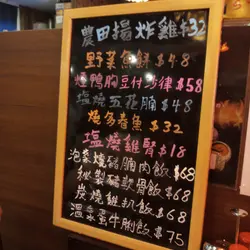 農田揚炸雞 $32
野菜魚餅 $48
煙鴨胸豆付沙律 $58
塩燒五花腩 $48
燒多春魚 $32
塩燒雞腎 $18
泡菜燒豬腩肉飯 $68
秘製豬軟骨飯 $68
炭燒雞扒飯 $68
溫泉蛋牛脷飯 $75